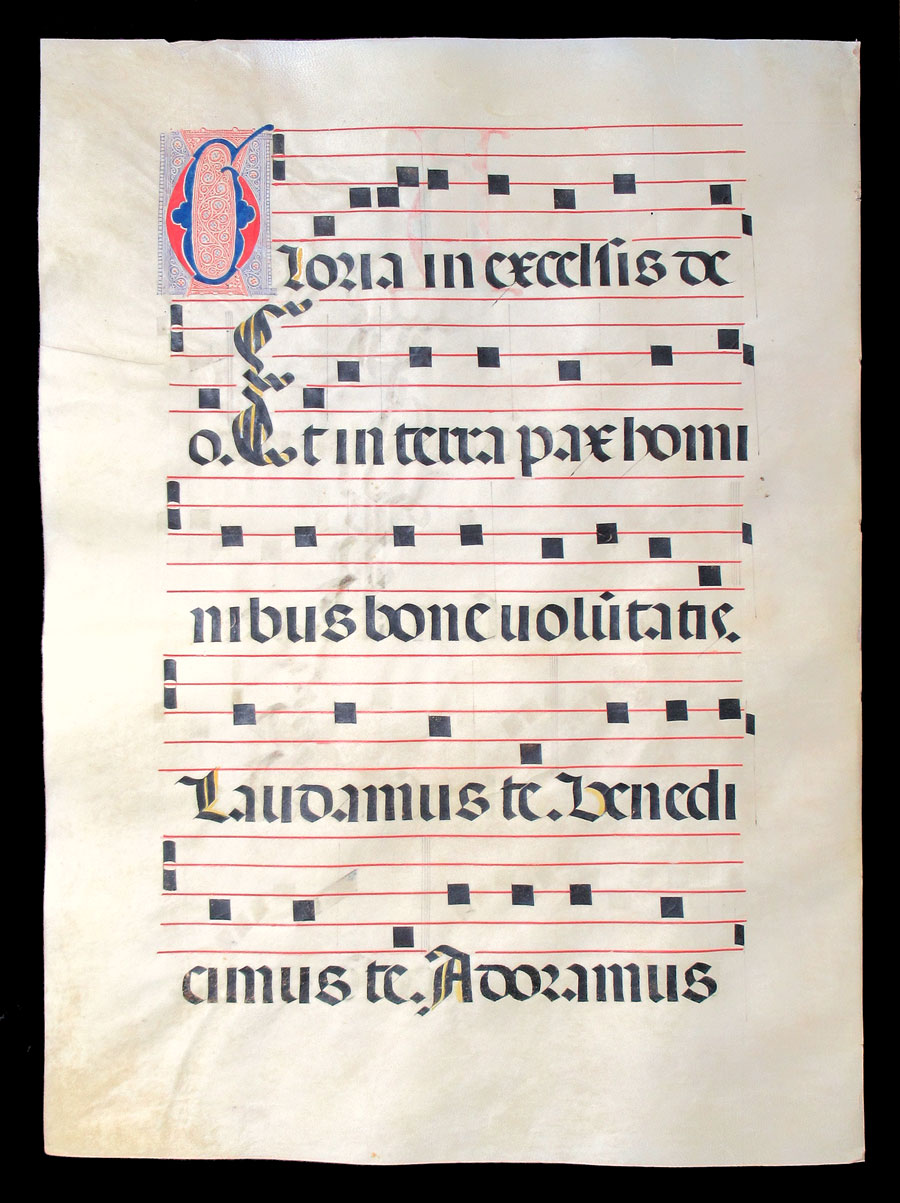 Gloria in excelsis de
o. Et in terra pax homi
nibus bone uolūtatis.
Laudamus te. Benedi
cimus te. Adoramus